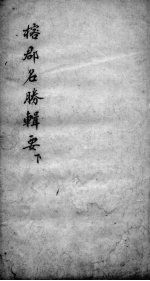 榕郡名勝輯要下